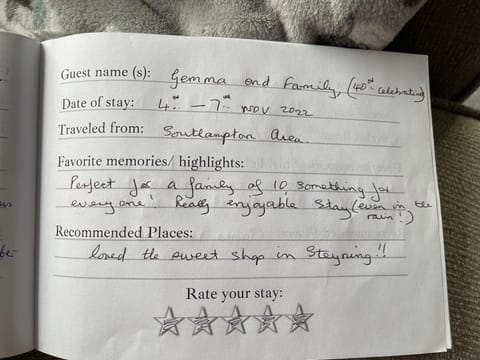 Guest name (s): Gemma and Family, (40th celebrating)
Date of stay: 4th - 7th NOV 2022
Traveled from: Southampton Area.
Favorite memories/ highlights:
Perfect for a family of 10, something for
everyone! Really enjoyable stay (even in the
rain!)
Recommended Places:
loved the sweet shop in Steyning!!
Rate your stay: